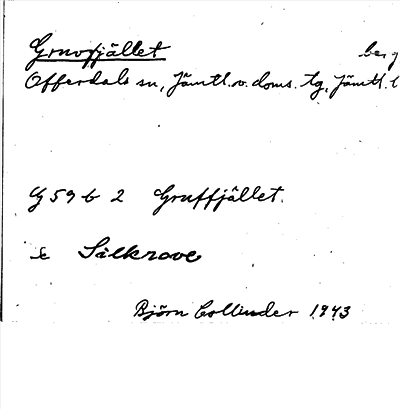 Gruvfjället berg
Offerdals sn, Jämtl. v. doms. tg, Jämtl. l
G 59 b 2 Gruffjället.
se Silkrove
Björn Collinder 1943